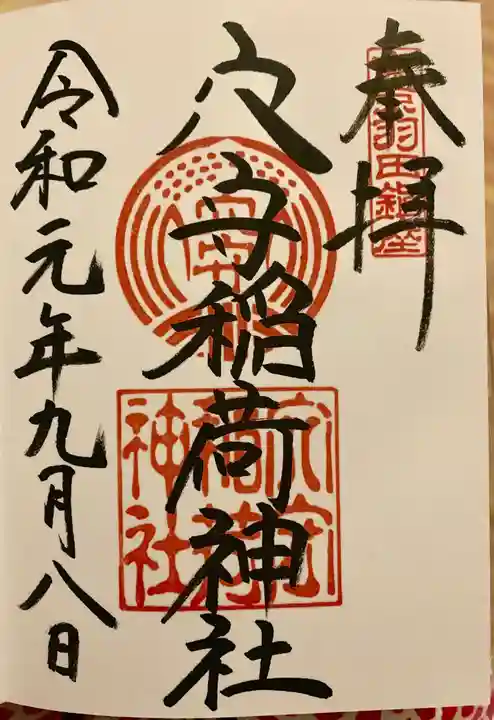 奉拝
東京羽田鎮座
穴守稲荷神社
穴守
稲荷
神社
令和元年九月八日